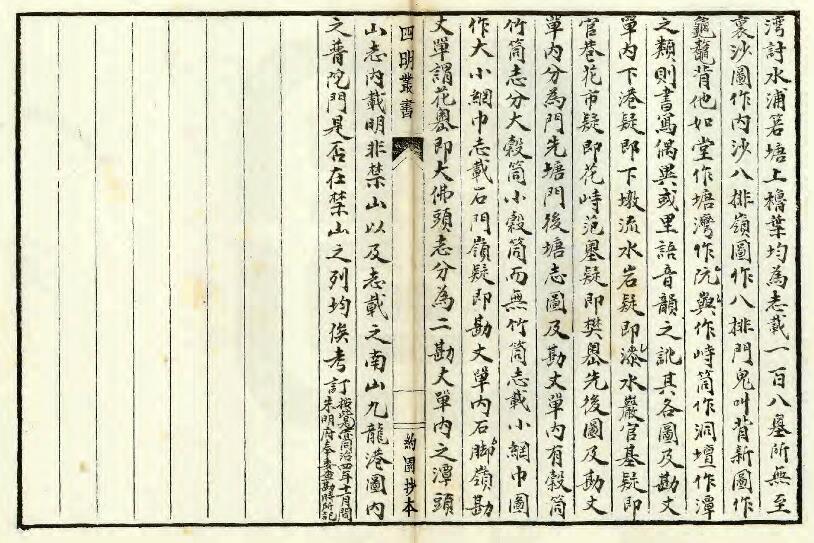 灣討水浦箬塘上櫓葉均為志載一百八墓所無至
裏沙圖作內沙八排嶺圖作八排門鬼叫背新圖作
龜龍背他如堂作塘灣作阮嶴作峙筒作洞壇作潭
之類則書寫偶異或里語音韻之訛其各圖及勘丈
單內下港疑即下墩流水岩疑即漆水巖官基疑即
官巷花市疑即花峙范嶴疑即樊嶴先後圖及勘丈
單內分為門先塘門後塘志圖及勘丈單內有榖筒
竹筒志分大榖筒小榖筒而無竹筒志載小網巾圖
作大小網巾志載石門嶺疑即勘丈單內石腳嶺勘
丈單謂花嶴即大佛頭志分為二勘丈單內之潭頭
四明叢書
約園抄本
山志內載明非禁山以及志載之南山九龍港圖內
之普陀門是否在禁山之列均俟考
同治四年十一月間
訂朱明府奉委查勘時所記